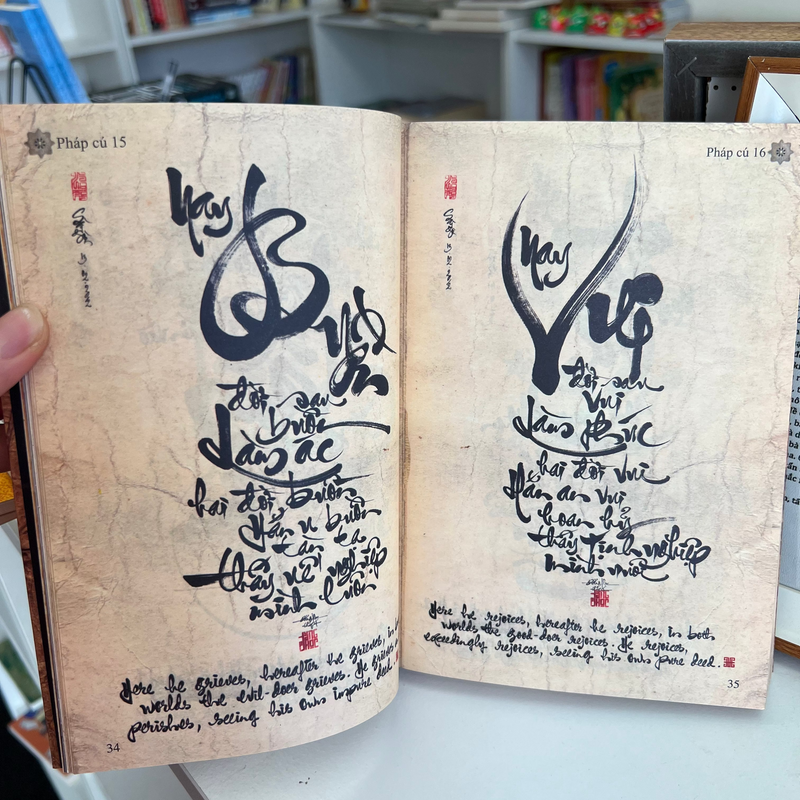 Pháp cú 15
Nay
Buồn
đời sau
buồn
Làm ác
hai đời buồn
Hắn u buồn
tàn tạ
thấy uế nghiệp
mình luôn
Here he grieves, hereafter he grieves, in
worlds the evil-doer grieves. He grieves
perishes, seeing his own impure deed.
34
Pháp cú 16
Nay
Vui
đời sau
vui
Làm phúc
hai đời vui
Hắn an vui
hoan hỷ
thấy tịnh nghiệp
mình nuôi
Here he rejoices, hereafter he rejoices, in both
worlds the good-doer rejoices. He rejoices,
exceedingly rejoices, seeing his own pure deed.
35